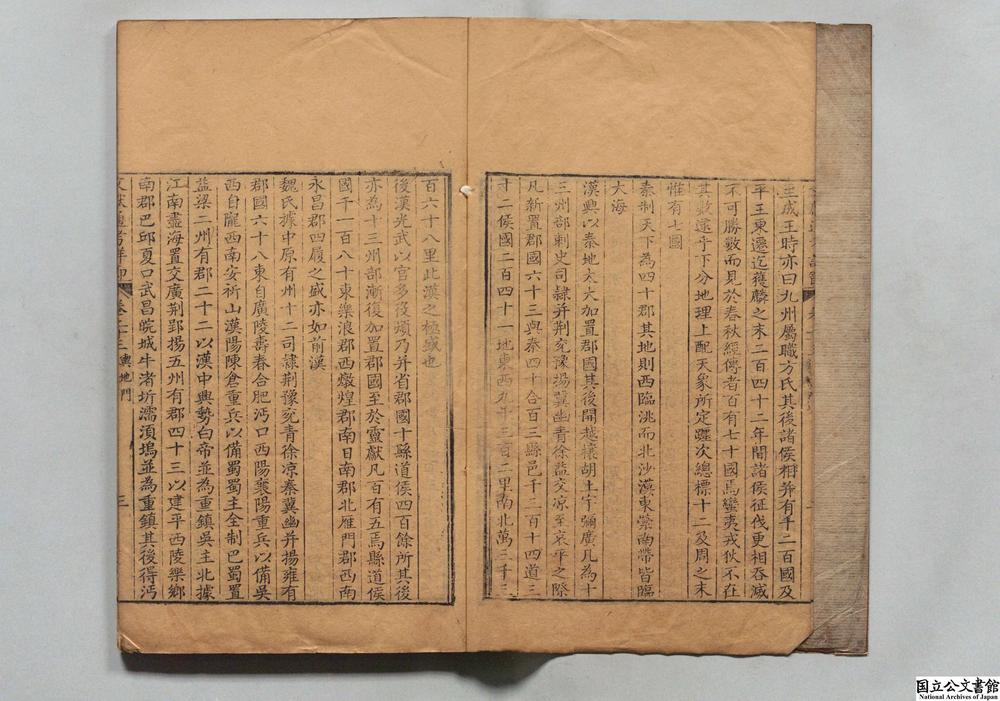 至成王時亦曰九州屬職方氏其後諸侯相并有千二百國及
平王東遷迄獲麟之末二百四十二年間諸侯征伐更相吞滅
不可勝數而見於春秋經傳者百有七十國焉蠻夷戎狄不在
其數逮乎下分地理上配天象所定躔次總標十二及周之末
惟有七國
秦制天下為四十郡其地則西臨洮而北沙漠東縈南帶皆臨
大海
漢興以秦地太大加置郡國其後開越攘胡土宇彌廣凡為十
三州部刺史司隷并荆兖豫揚冀幽青徐益交凉至哀平之際
凡新置郡國六十三與秦四十合百三縣邑千三百一十四道三
十二侯國二百四十一地東西九千三百二里南北萬三千三
百六十八里此漢之極盛也
後漢光武以官多役煩乃并省郡國十縣道侯四百餘所其後
亦為十三州部漸復加置郡國至於靈獻凡百有五焉縣道侯
國千一百八十東樂浪郡西燉煌郡南日南郡北雁門郡西南
永昌郡四履之盛亦如前漢
魏氏據中原有州十二司隷荆豫兖青徐凉秦冀幽并揚雍有
郡國六十八東自廣陵壽春合肥沔口西陽襄陽重兵以備吳
西自隴西南安祈山漢陽陳倉重兵以備蜀蜀主全制巴蜀置
益梁二州有郡二十二以漢中興勢白帝並為重鎮吳主北據
江南盡海置交廣荆郢揚五州有郡四十三以建平西陵樂鄉
南郡巴邱夏口武昌皖城牛渚圻濡湏塢並為重鎮其後得沔
文獻通考詳節
卷二十三
輿地門
三
国立公文書館
National Archives of Japan